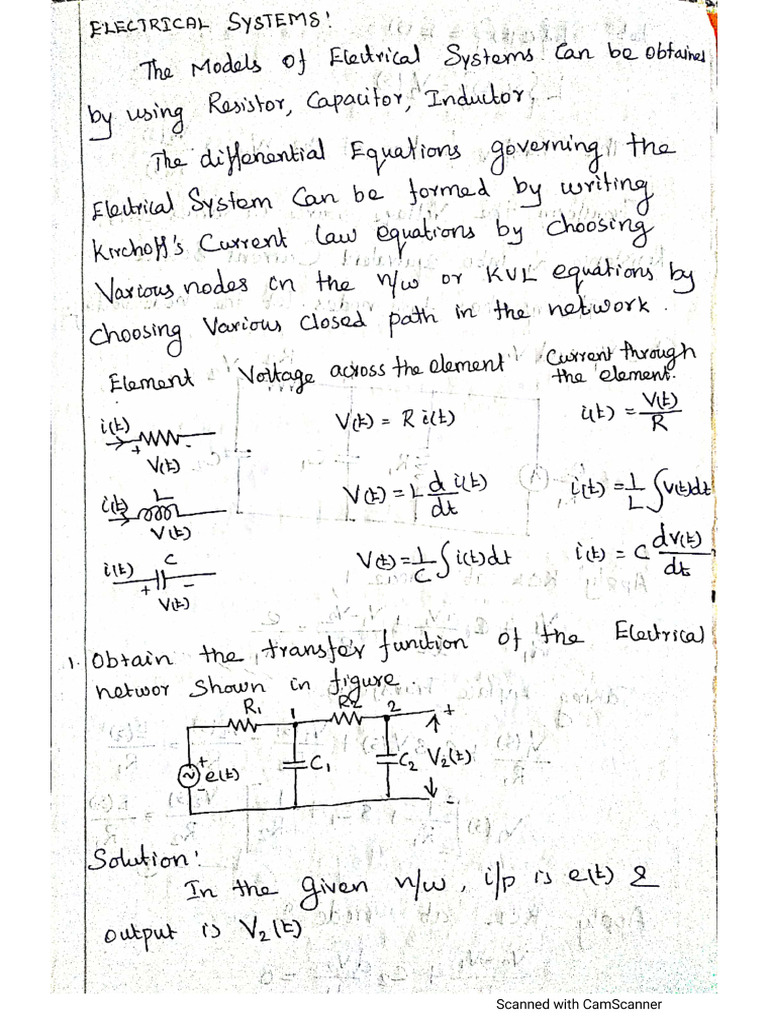 ELECTRICAL SYSTEMS:
The Models of Electrical Systems Can be obtained
by using Resistor, Capacitor, Inductor.
The differential Equations governing the
Electrical System Can be formed by writing
Kirchoff's Current law equations by choosing
Various nodes in the n/w or KVL equations by
choosing Various closed path in the network.
Element Voltage across the element Current through
the element.
i(t) + - V(t) V(t) = R i(t) i(t) = V(t)/R
i(t) L V(t) V(t) = L d/dt i(t) i(t) = 1/L ∫v(t)dt
i(t) C + - V(t) V(t) = 1/C ∫i(t)dt i(t) = C dv(t)/dt
1. Obtain the transfer function of the Electrical
networ shown in figure.
R1 1 R2 2 +
+ e(t) - C1 C2 V2(t)
-
Solution:
In the given n/w, i/p is e(t) &
output is V2(t)
Scanned with CamScanner